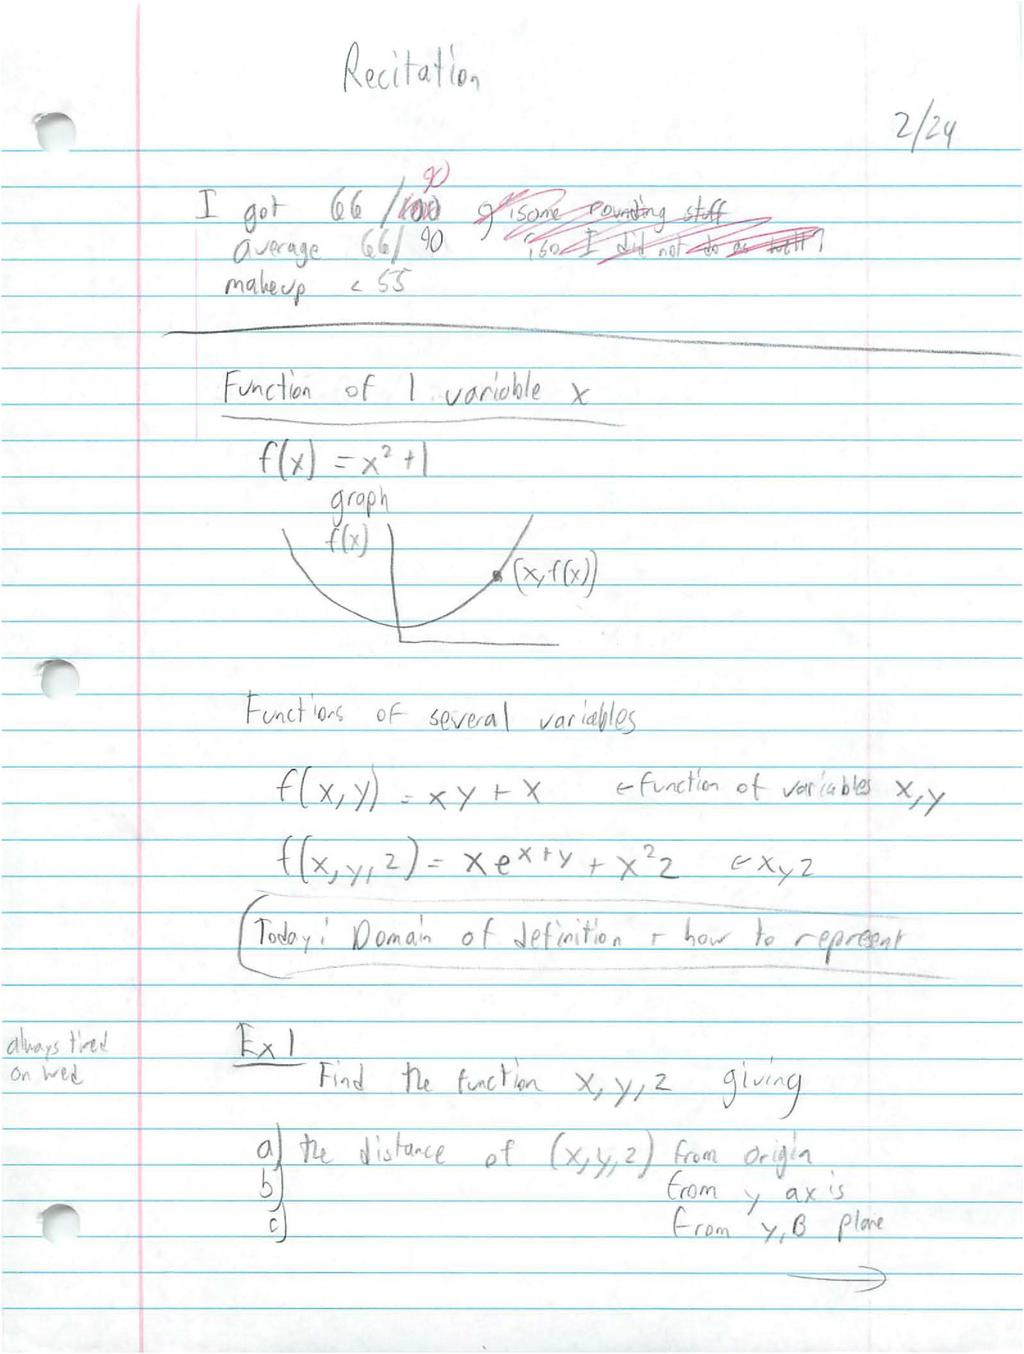 Recitation
2/24
I got 66/90
some rounding stuff
average 66/90
so I did not do as well?
makeup < 55
Function of 1 variable x
f(x) = x² + 1
graph
f(x)
(x, f(x))
Functions of several variables
f(x, y) = xy + x ← function of variables x, y
f(x, y, z) = xe^{x+y} + x²z ← xyz
Today: Domain of definition + how to represent
always tired
on wed
Ex 1
Find the function x, y, z giving
a) the distance of (x, y, z) from origin
b) from y axis
c) from y, B plane
→